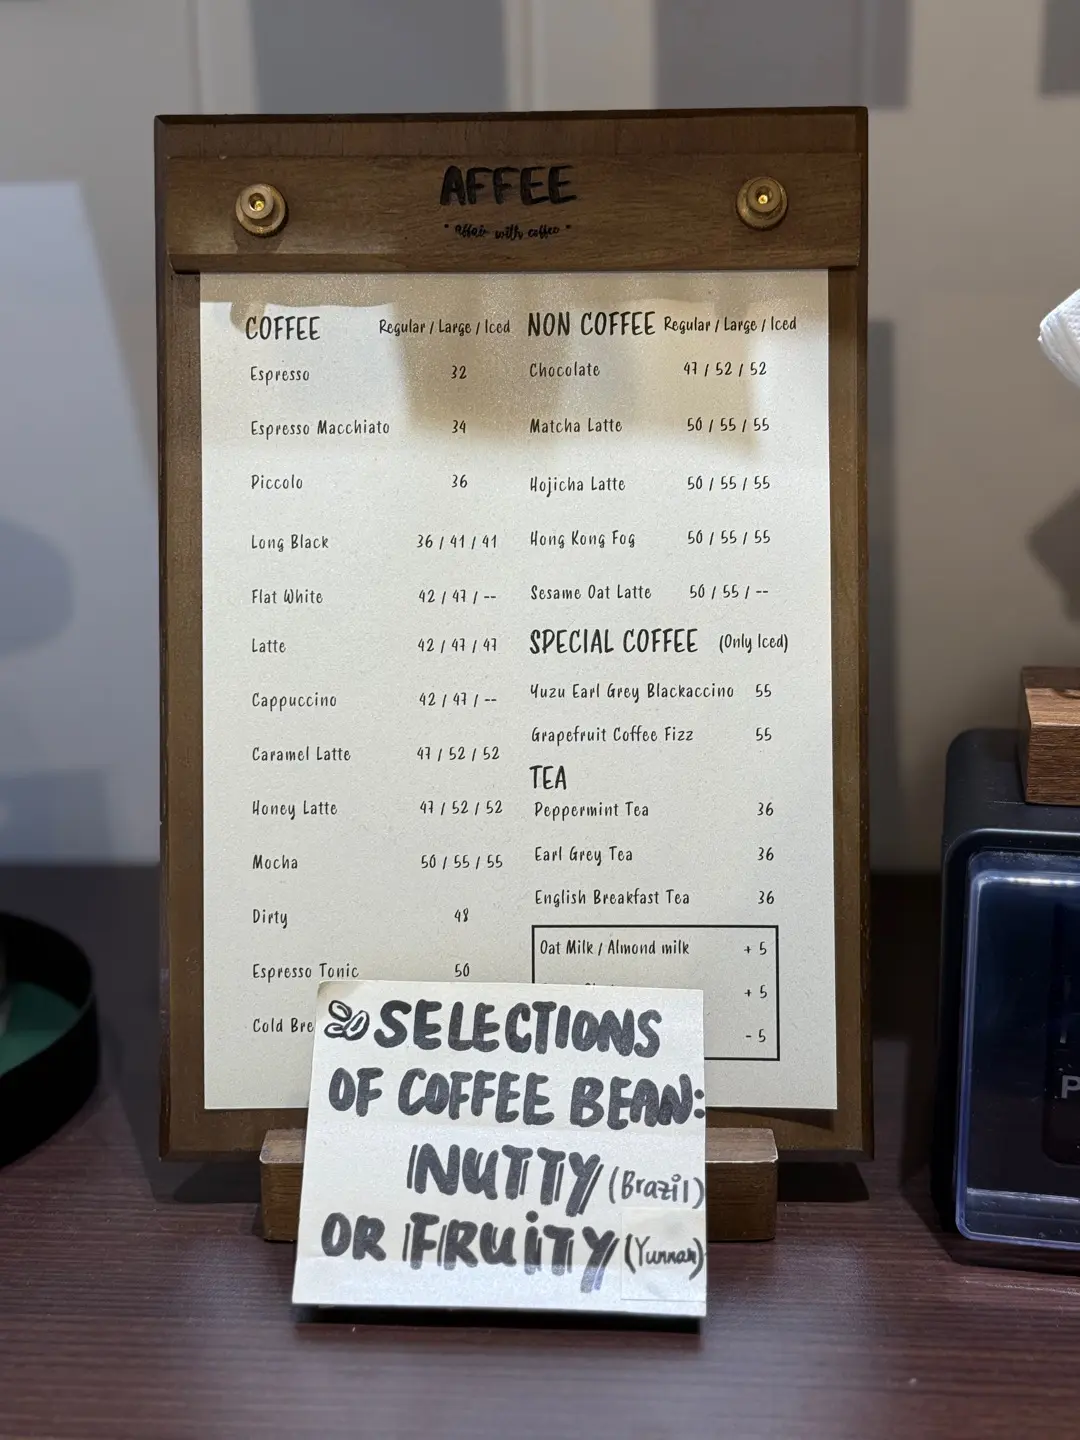 AFFEE
"affair with coffee"
COFFEE Regular / Large / Iced
Espresso 32
Espresso Macchiato 34
Piccolo 36
Long Black 36 / 41 / 41
Flat White 42 / 47 / --
Latte 42 / 47 / 47
Cappuccino 42 / 47 / --
Caramel Latte 47 / 52 / 52
Honey Latte 47 / 52 / 52
Mocha 50 / 55 / 55
Dirty 48
Espresso Tonic 50
Cold Bre
NON COFFEE Regular / Large / Iced
Chocolate 47 / 52 / 52
Matcha Latte 50 / 55 / 55
Hojicha Latte 50 / 55 / 55
Hong Kong Fog 50 / 55 / 55
Sesame Oat Latte 50 / 55 / --
SPECIAL COFFEE (Only Iced)
Yuzu Earl Grey Blackaccino 55
Grapefruit Coffee Fizz 55
TEA
Peppermint Tea 36
Earl Grey Tea 36
English Breakfast Tea 36
Oat Milk / Almond milk + 5
+ 5
- 5
SELECTIONS
OF COFFEE BEAN:
NUTTY (Brazil)
OR FRUITY (Yunnan)
P